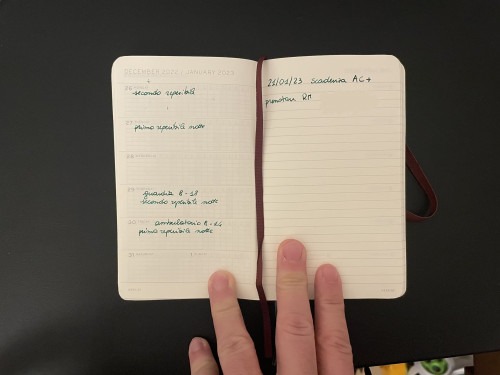 DECEMBER 2022 / JANUARY 2023
26
secondo reperibile
27
primo reperibile notte
28
29
guardia 8-18
secondo reperibile notte
30
ambulatorio 8-14
primo reperibile notte
31
1
21/01/23 scadenza AC +
prenotare RM